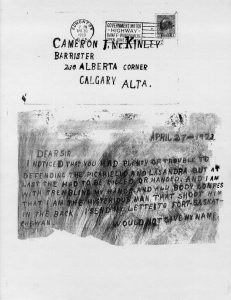 GOVERNMENT MOTOR
HIGHWAY
CAMERON J. McKINLEY.
BARRISTER
ALBERTA CORNER
CALGARY ALTA.
APRIL 27-1922
DEAR SIR
I NOTICED THAT YOU HAD PLENTY OF TROUBLE TO
DEFENDING THE PICARIELLO AND LASANDRA BUT AT
LAST THE HAD TO BE HANGED. AND I AM
WITH TREMBLING MY HAND AND BODY
THAT I AM THE MYSTERIOUS MAN THAT SHOOT HIM
IN THE BACK I SEND LETTER TO PORT-SASKAT-
CHEWAN.
WOULD NOT GIVE MY NAME.